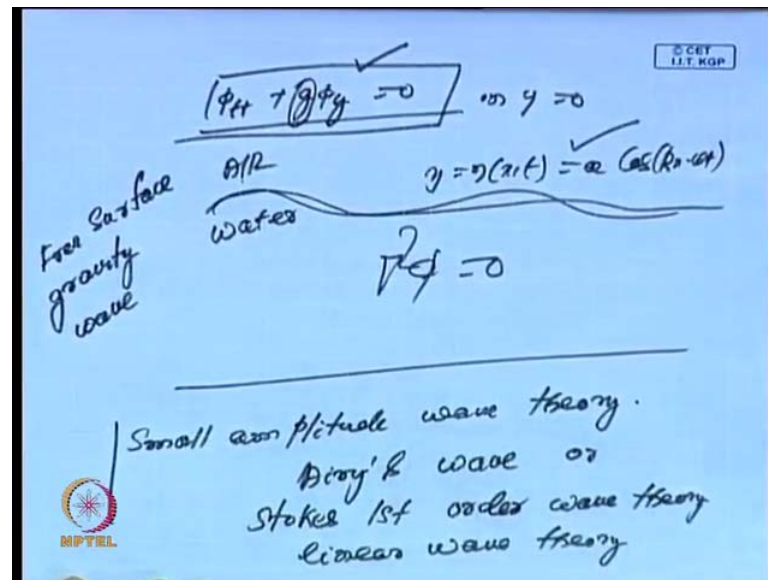 © CET
I.I.T. KGP
ϕtt + gϕy = 0 on y = 0
Free Surface
gravity
wave
AIR
y = η(x,t) = a Cos(kx-ωt)
water
∇²ϕ = 0
Small amplitude wave theory.
Airy's wave or
Stokes 1st order wave theory
linear wave theory
NPTEL